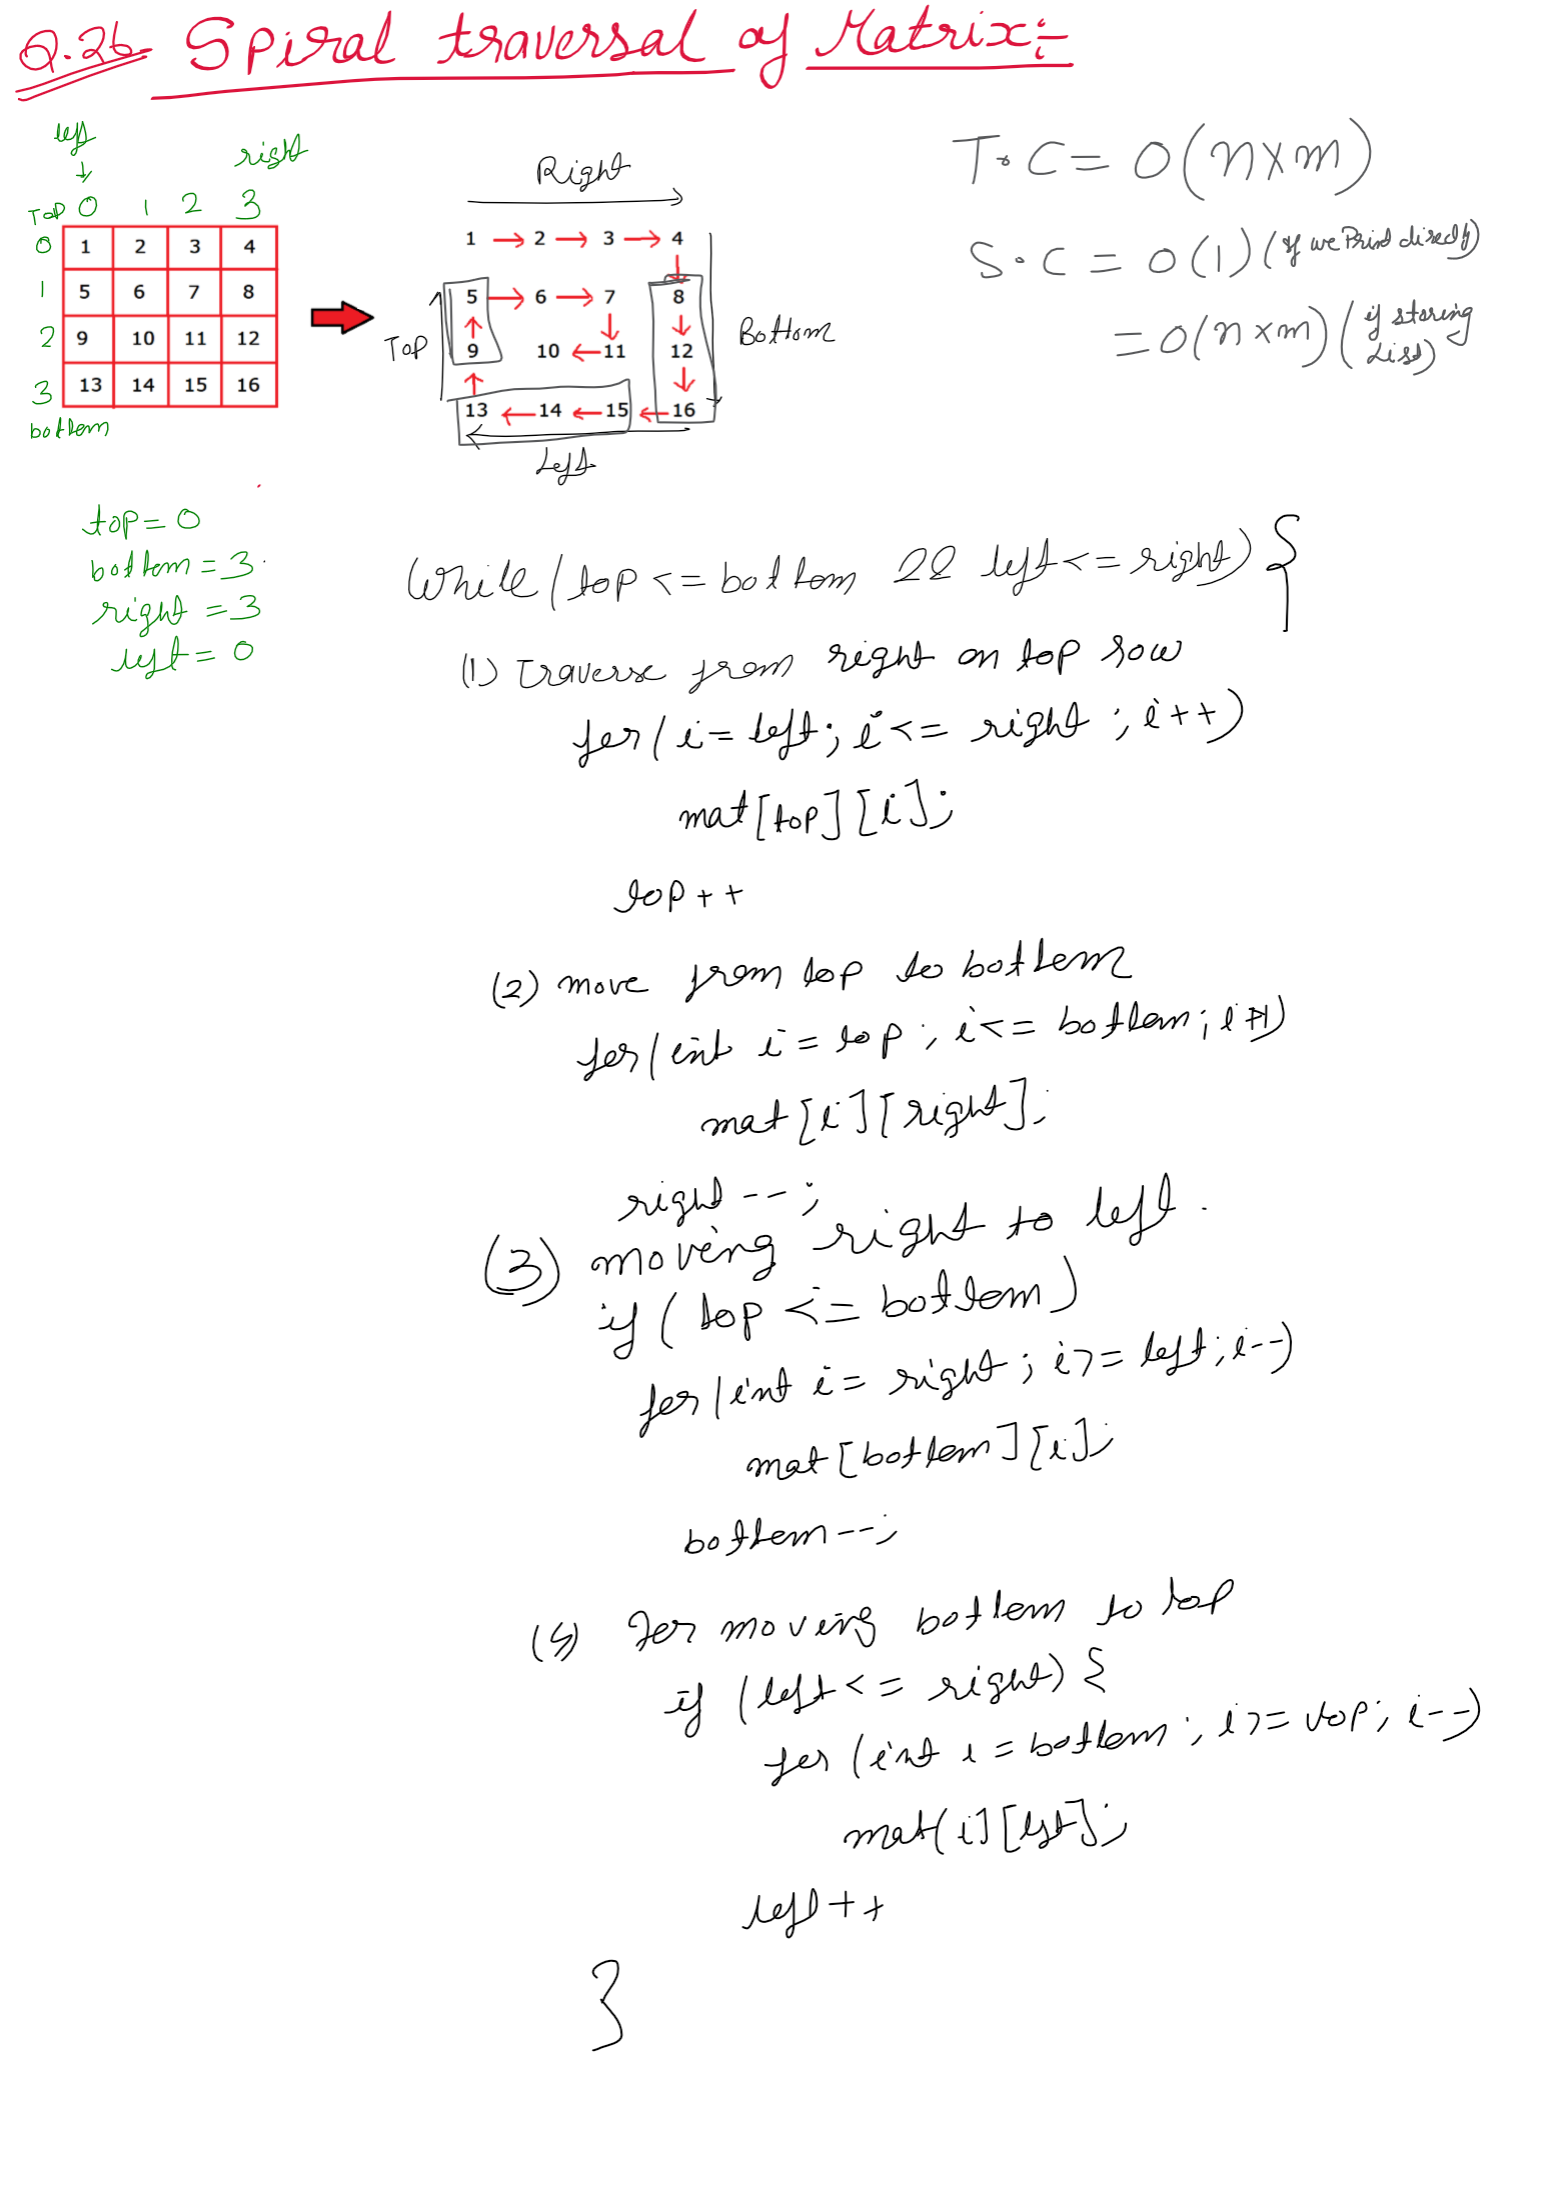 Q.26 Spiral traversal of Matrix:-
left
right
Top 0 1 2 3
0 1 2 3 4
1 5 6 7 8
2 9 10 11 12
3 13 14 15 16
bottom
Right
1 → 2 → 3 → 4
5 → 6 → 7 8
9 10 ← 11 12
13 ← 14 ← 15 ← 16
Top
Bottom
Left
T.C = O(n×m)
S.C = O(1) (if we Print directly)
= O(n×m) (if storing
List)
top = 0
bottom = 3
right = 3
left = 0
While (top <= bottom && left <= right) {
(1) Traverse from right on top row
for (i = left; i <= right; i++)
mat[top][i];
top++
(2) move from top to bottom
for (int i = top; i <= bottom; i++)
mat[i][right];
right --;
(3) moving right to left.
if (top <= bottom)
for (int i = right; i >= left; i--)
mat[bottom][i];
bottom--;
(4) For moving bottom to top
if (left <= right) {
for (int i = bottom; i >= top; i--)
mat(i][left];
left++
}